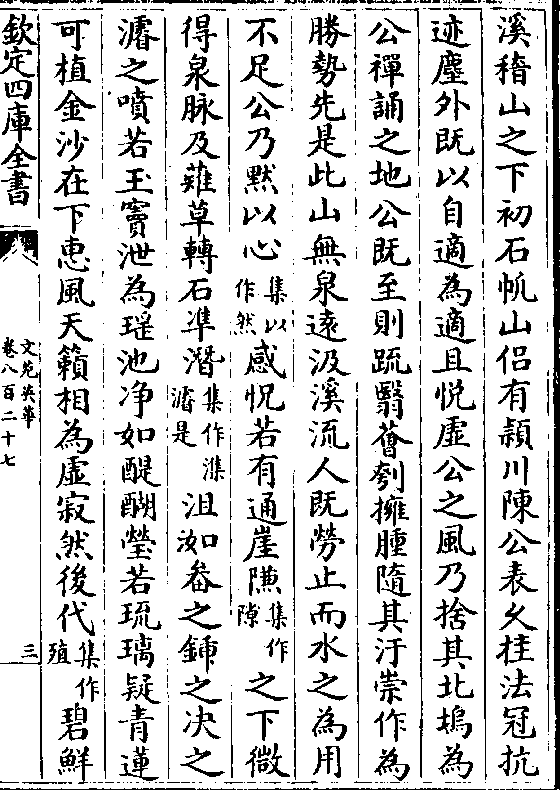 溪稽山之下初石帆山侶有頴川陳公表乆挂法冠抗
迹塵外既以自適為適且悦虚公之風乃捨其北塢為
公禪誦之地公既至則疏翳薈刳擁腫隨其汙崇作為
勝勢先是此山無泉遠汲溪流人既勞止而水之為用
不足公乃黙以心集以作然感怳若有通崖隒集作隙之下微
得泉脉及薙草轉石凖潛集作潗濬是沮洳畚之鍤之决之
濬之噴若玉竇泄為瑶池净如醍醐瑩若琉璃疑青蓮
可植金沙在下惠風天籟相為虚寂然後代集作殖碧鮮
欽定四庫全書
文苑英華
卷八百二十七
三